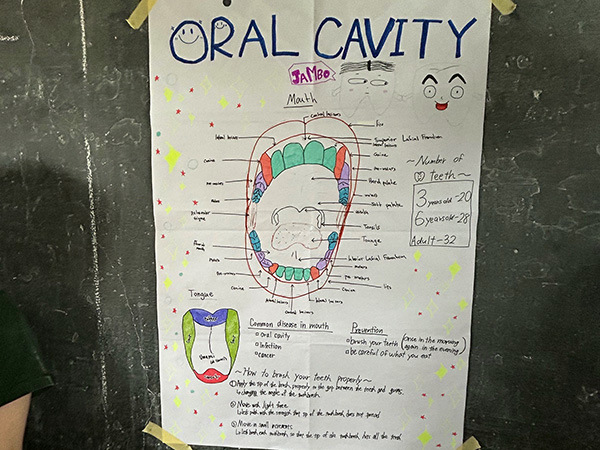 ORAL CAVITY
JAMBO
Mouth
central incisors
lip
Superior Labial Frenulum
lateral incisors
Canine
Canine
pre-molars
Hard palate
molars
Soft palate
uvula
Tonsils
Tongue
Molars
pre-molars
Canine
lips
lateral incisors
Central incisors
~ Number of
teeth ~
3 years old - 20
6 years old - 28
Adult - 32
Tongue
Common disease in mouth
oral cavity
Infection
cancer
Prevention
brush your teeth (once in the morning
again in the evening)
be careful of what you eat
~ How to brush your teeth properly ~
① Apply the tip of the brush properly in the gap between the teeth and gums.
changing the angles of the toothbrush.
② Move with light force
the tip of the toothbrush does not spread
③ Move in small increments